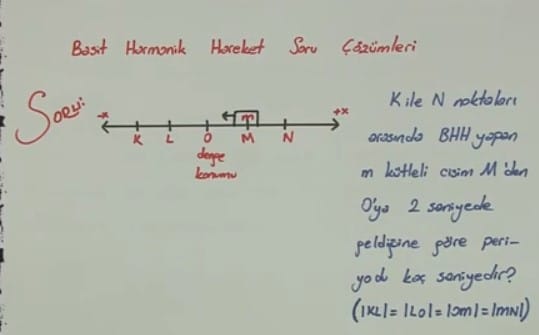 Basit Harmonik Hareket Soru Çözümleri
Soru:
-x +x
m
K L O M N
denge
konumu
K ile N noktaları
arasında BHH yapan
m kütleli cisim M'den
O'ya 2 saniyede
geldiğine göre peri-
yodu kaç saniyedir?
(|KL|=|LO|=|OM|=|MN|)